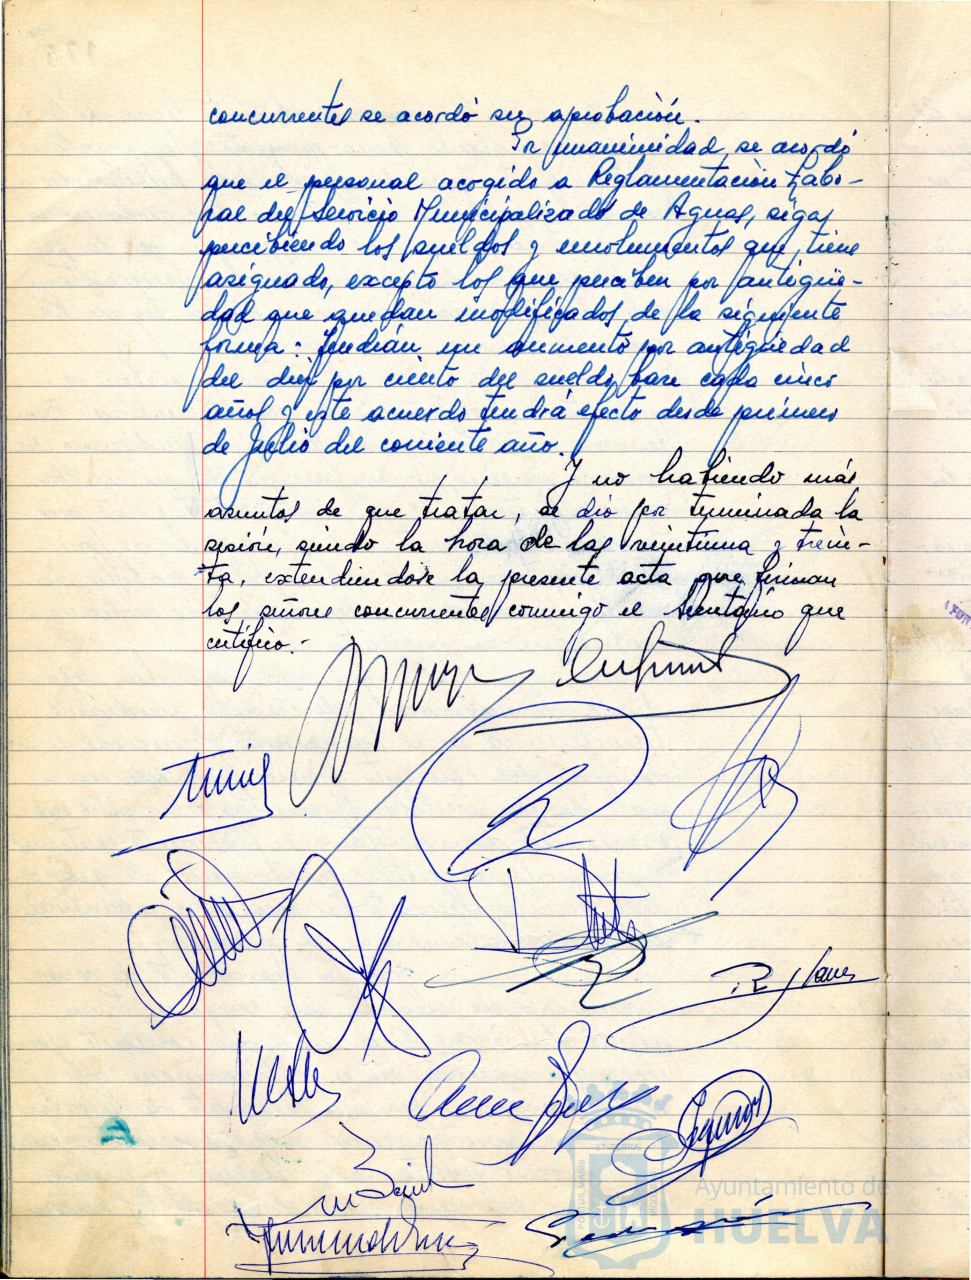 concurrentes se acordó su aprobación.
Por unanimidad se acordó
que el personal acogido a Reglamentación Labo-
ral del Servicio Municipalizado de Aguas, siga
percibiendo los sueldos y emolumentos que tiene
asignado, excepto los que perciben por antigüe-
dad que quedan modificados de la siguiente
forma: Tendrán un aumento por antigüedad
del diez por ciento del sueldo base cada cinco
años y este acuerdo tendrá efecto desde primero
de Julio del corriente año.
Y no habiendo más
asuntos de que tratar, se dió por terminada la
sesión, siendo la hora de las veintiuna y trein-
ta, extendiendose la presente acta que firman
los señores concurrentes conmigo el Secretario que
certifico.-
Ayuntamiento de
HUELVA